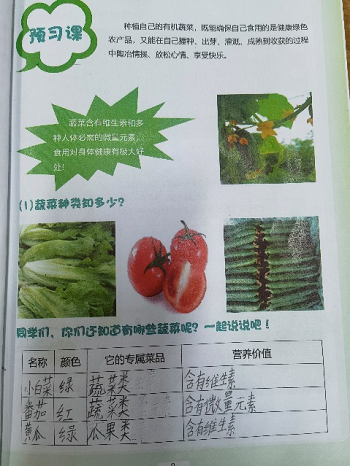 预习课
种植自己的有机蔬菜，既能确保自己食用的是健康绿色
农产品，又能在自己播种、出芽、灌溉、成熟到收获的过程
中陶冶情操、放松心情、享受快乐。
蔬菜含有维生素和多
种人体必需的微量元素，
食用对身体健康有极大好
处！
(1)蔬菜种类知多少？
同学们，你们还知道有哪些蔬菜呢？一起说说吧！
名称 颜色 它的专属菜品 营养价值
小白菜 绿 蔬菜类 含有维生素
番茄 红 蔬菜类 含有微量元素
黄瓜 绿 瓜果类 含有维生素